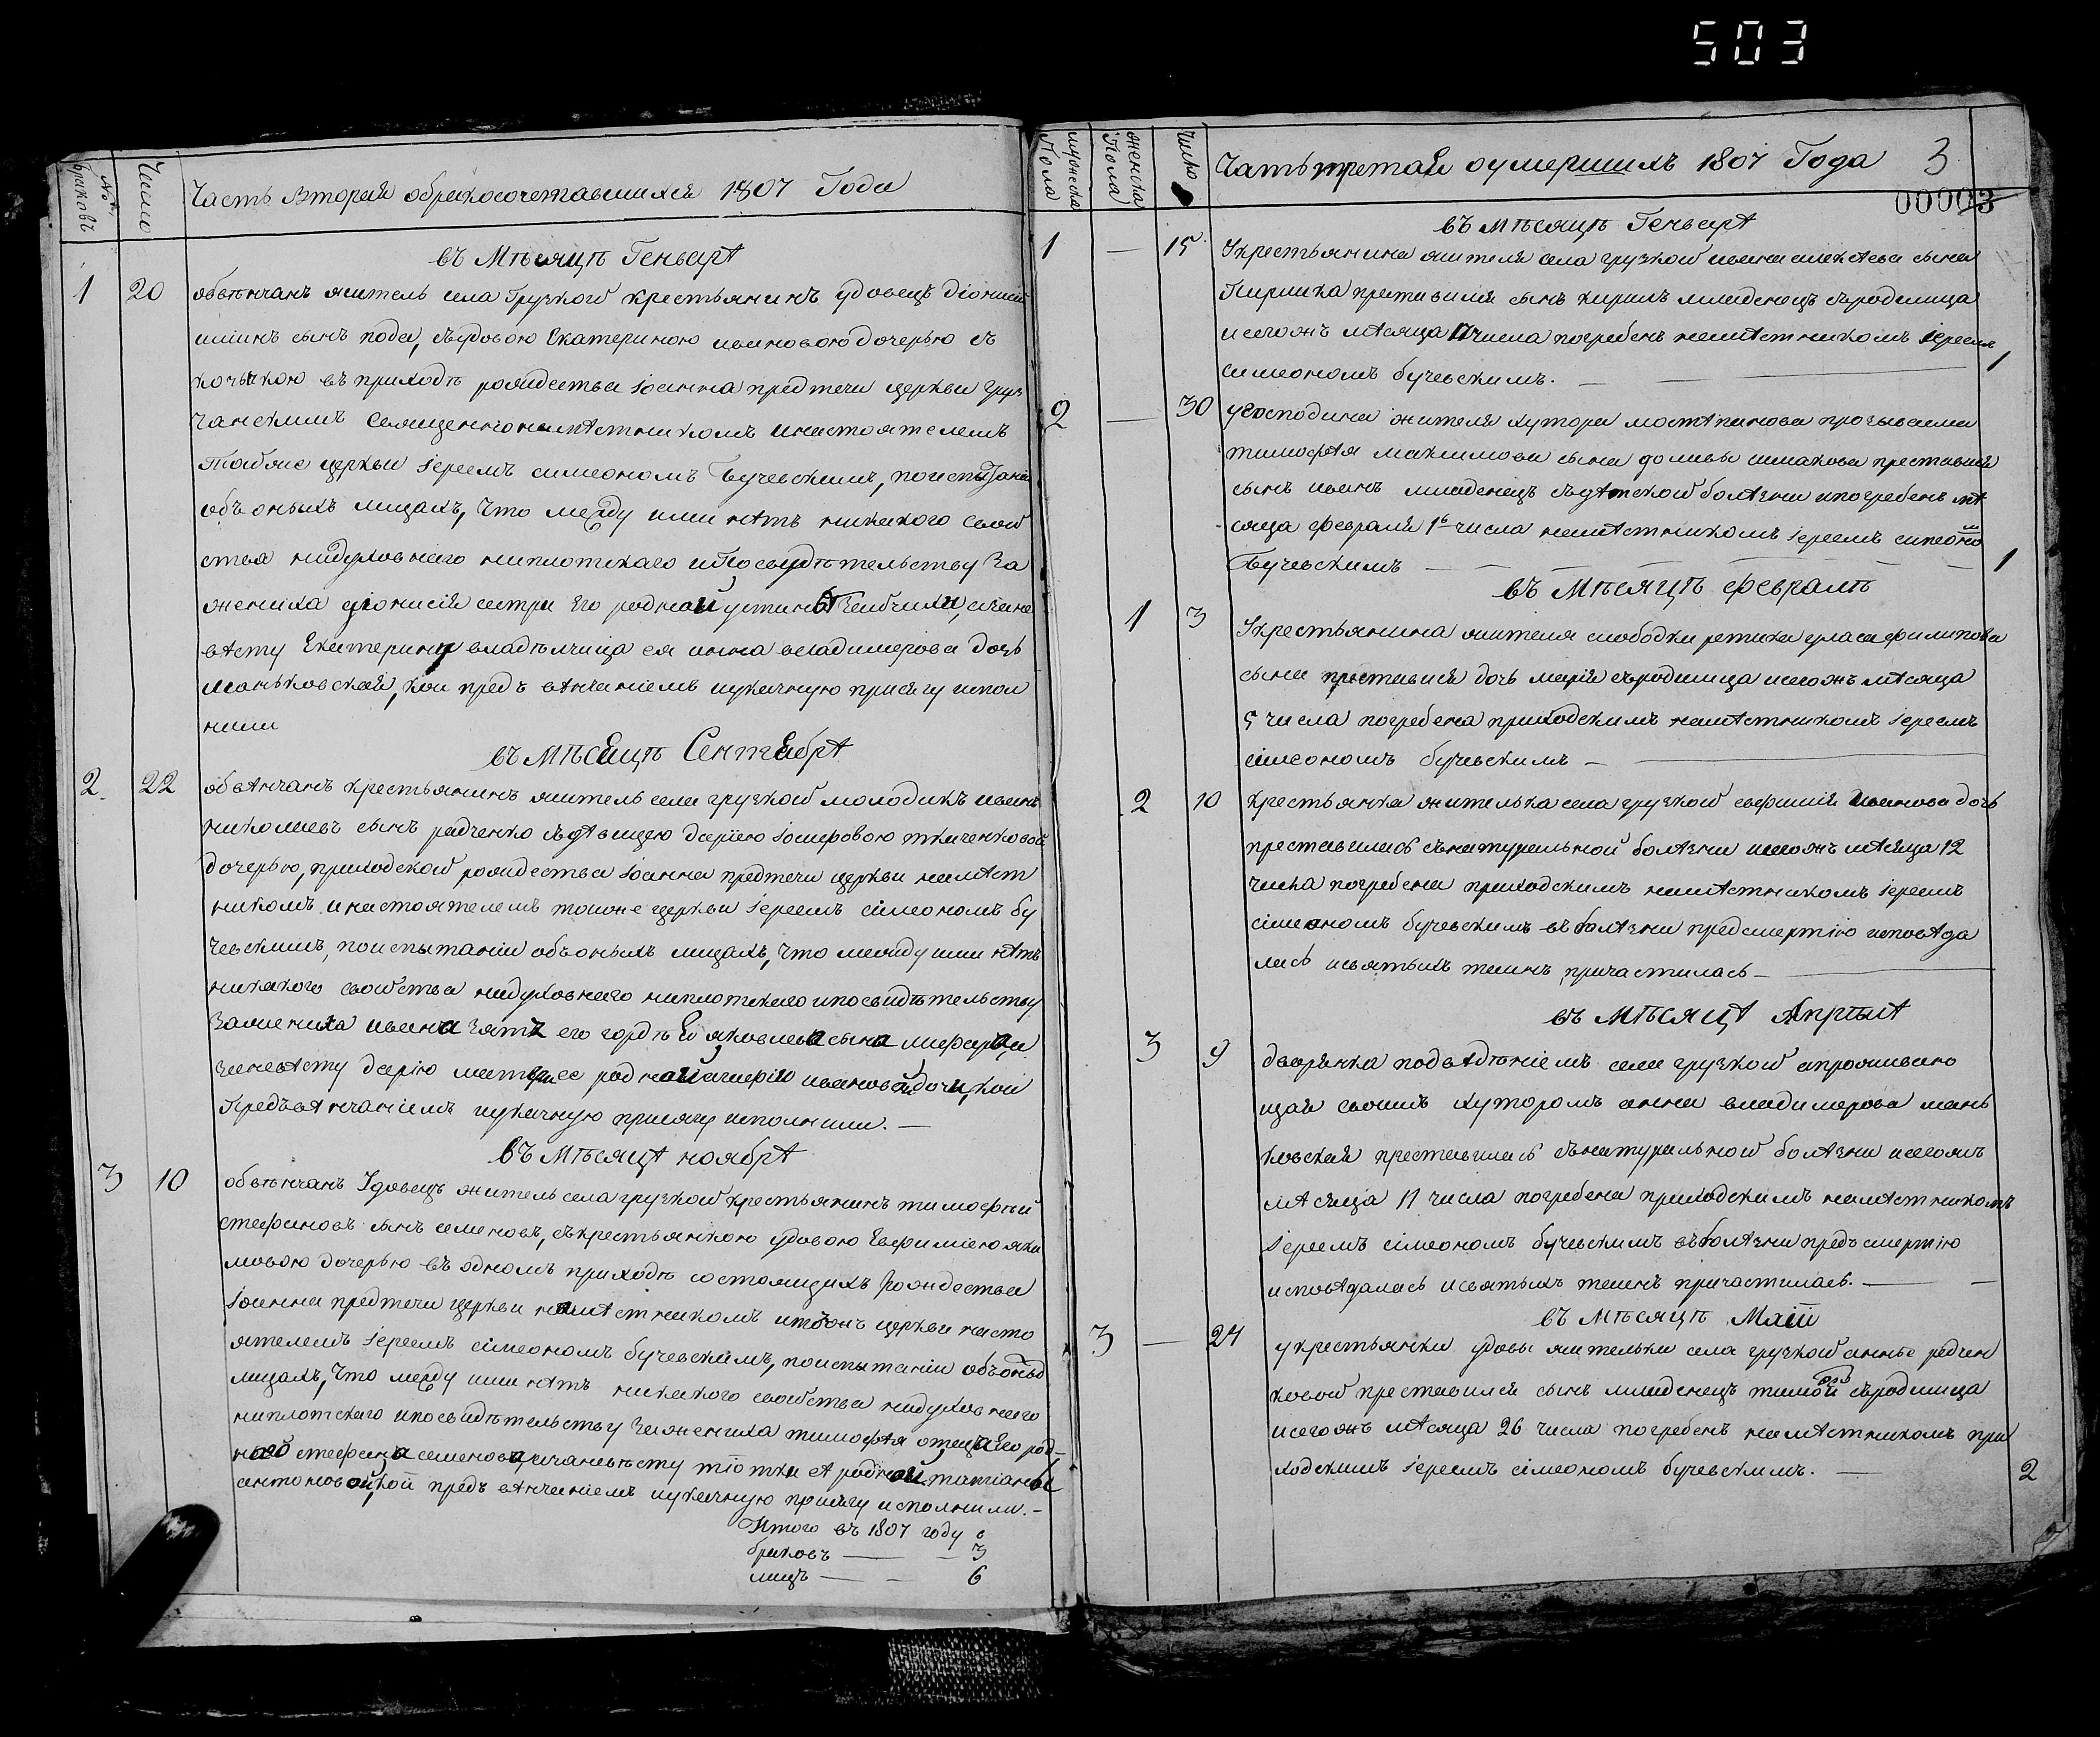 503
№ браковъ
Число
Часть вторая обракосочетавшихся 1807 Года
въ Мѣсяцѣ Генварѣ
1 20 обвѣнчанъ житель села Грузкой крестьянинъ удовецъ діонисій
сынъ вдовою Екатериною ивановою дочерью
въ приходѣ рождества іоанна предтечи церкви груз
чанскимъ священнонамѣстникомъ инастоятелемъ
тояже церкви іереемъ симеономъ Бучевскимъ, поиспытаніи
объ оныхъ лицахъ, что между ими нѣтъ никакого свой
ства нидуховнаго ниплотскаго ипосвидѣтельству за
жениха діонисія сестри его родной
вѣсту Екатерину владѣлчица ея анна владимерова дочь
маньковская, кои предъ вѣнчаніемъ исполн
нили
въ Мѣсяцѣ Сентябрѣ
2 22 обвѣнчанъ крестьянинъ житель села грузкой молодикъ иванъ
николаевъ сынъ радченко здѣвицею даріею іосифовою ткаченковой
дочерью, приходской рождества іоанна предтечи церкви намѣст
никомъ инастоятелемъ тоиже церкви іереемъ сімеономъ бу
чевскимъ, поиспытаніи объоныхъ лицахъ, что между ими нѣтъ
никакого свойства нидуховнаго ниплотскаго ипосвидѣтельству
зажениха ивана его яковлева сына
заневѣсту дарію родной ивановой дочи, кои
предъвѣнчаніемъ присягу исполнили.
въ Мѣсяцѣ ноябрѣ
3 10 обвѣнчанъ Удовецъ житель села грузкой крестьянинъ тимофтей
стефановъ сынъ семеновъ, скрестьянкою удовою Евфиміею яки
мовою дочерью въ одномъ приходѣ состоящихъ Рождества
Іоанна предтечи церкви намѣстникомъ итоижъ церкви насто
ятелемъ іереемъ сімеономъ бучевскимъ, поиспытаніи объоныхъ
лицахъ, что между ими нѣтъ никакого свойства нидуховнаго
ниплотскаго ипосвидѣтельству зажениха тимофѣя отца Его род
наго стефана семенова, изаневѣсту тіотки еѣ родной татіаны
антоновой, кой предъ вѣнчаніемъ присягу исполнили.
Итого въ 1807 году
браковъ — 3
лицъ — 6
мужеска Пола
женска Пола
Число
Часть третая оумершихъ 1807 Года 3
00003
въ мѣсяцѣ Генварѣ
1 — 15 Укрестьянина жителя села грузкой ивана алексѣева сына
преставился сынъ кирилъ младенецъ съродимца
исегожъ мѣсяца 17 числа погребенъ намѣстникомъ іереемъ
симеономъ бучевскимъ. — 1
2 — 30 угосподина жителя хутора прозываема
тимофѣя максимова сына преставися
сынъ иванъ младенецъ здѣтской болѣзни ипогребенъ мѣ
сяца февраля 1 числа намѣстникомъ іереемъ симеоно
Бучевскимъ — 1
въ Мѣсяцѣ февралѣ
1 3 Укрестьянина жителя слободки власа филипова
сына преставися дочь марія съродимца исегожъ мѣсяца
5 числа погребена приходскимъ намѣстникомъ іереемъ
сімеономъ бучевскимъ —
2 10 крестьянка жителька села грузкой евфимія иванова дочь
преставилась снатуральной болѣзни исегожъ мѣсяца 12
числа погребена приходскимъ намѣстникомъ іереемъ
сімеономъ бучевскимъ въ болѣзни предсмертію исповѣда
лась исвятыхъ таинъ причастилась —
въ Мѣсяцѣ Апрѣлѣ
3 9 дворянка подвѣдѣніемъ села грузкой апроживаю
щая своимъ хуторомъ анна владимерова мань
ковская преставилась снатуральной болѣзни исегожъ
мѣсяца 11 числа погребена приходскимъ намѣстникомъ
іереемъ сімеономъ бучевскимъ въболѣзни предъсмертію
исповѣдалась исвятыхъ таинъ причастилась. —
въ Мѣсяцѣ Маіи
3 — 24 укрестьянки удовы жительки села грузкой анны радчен
ковой преставился сынъ младенецъ тимофей съродимца
исегожъ мѣсяца 26 числа погребенъ намѣстникомъ при
ходскимъ іереемъ сімеономъ бучевскимъ. — 2